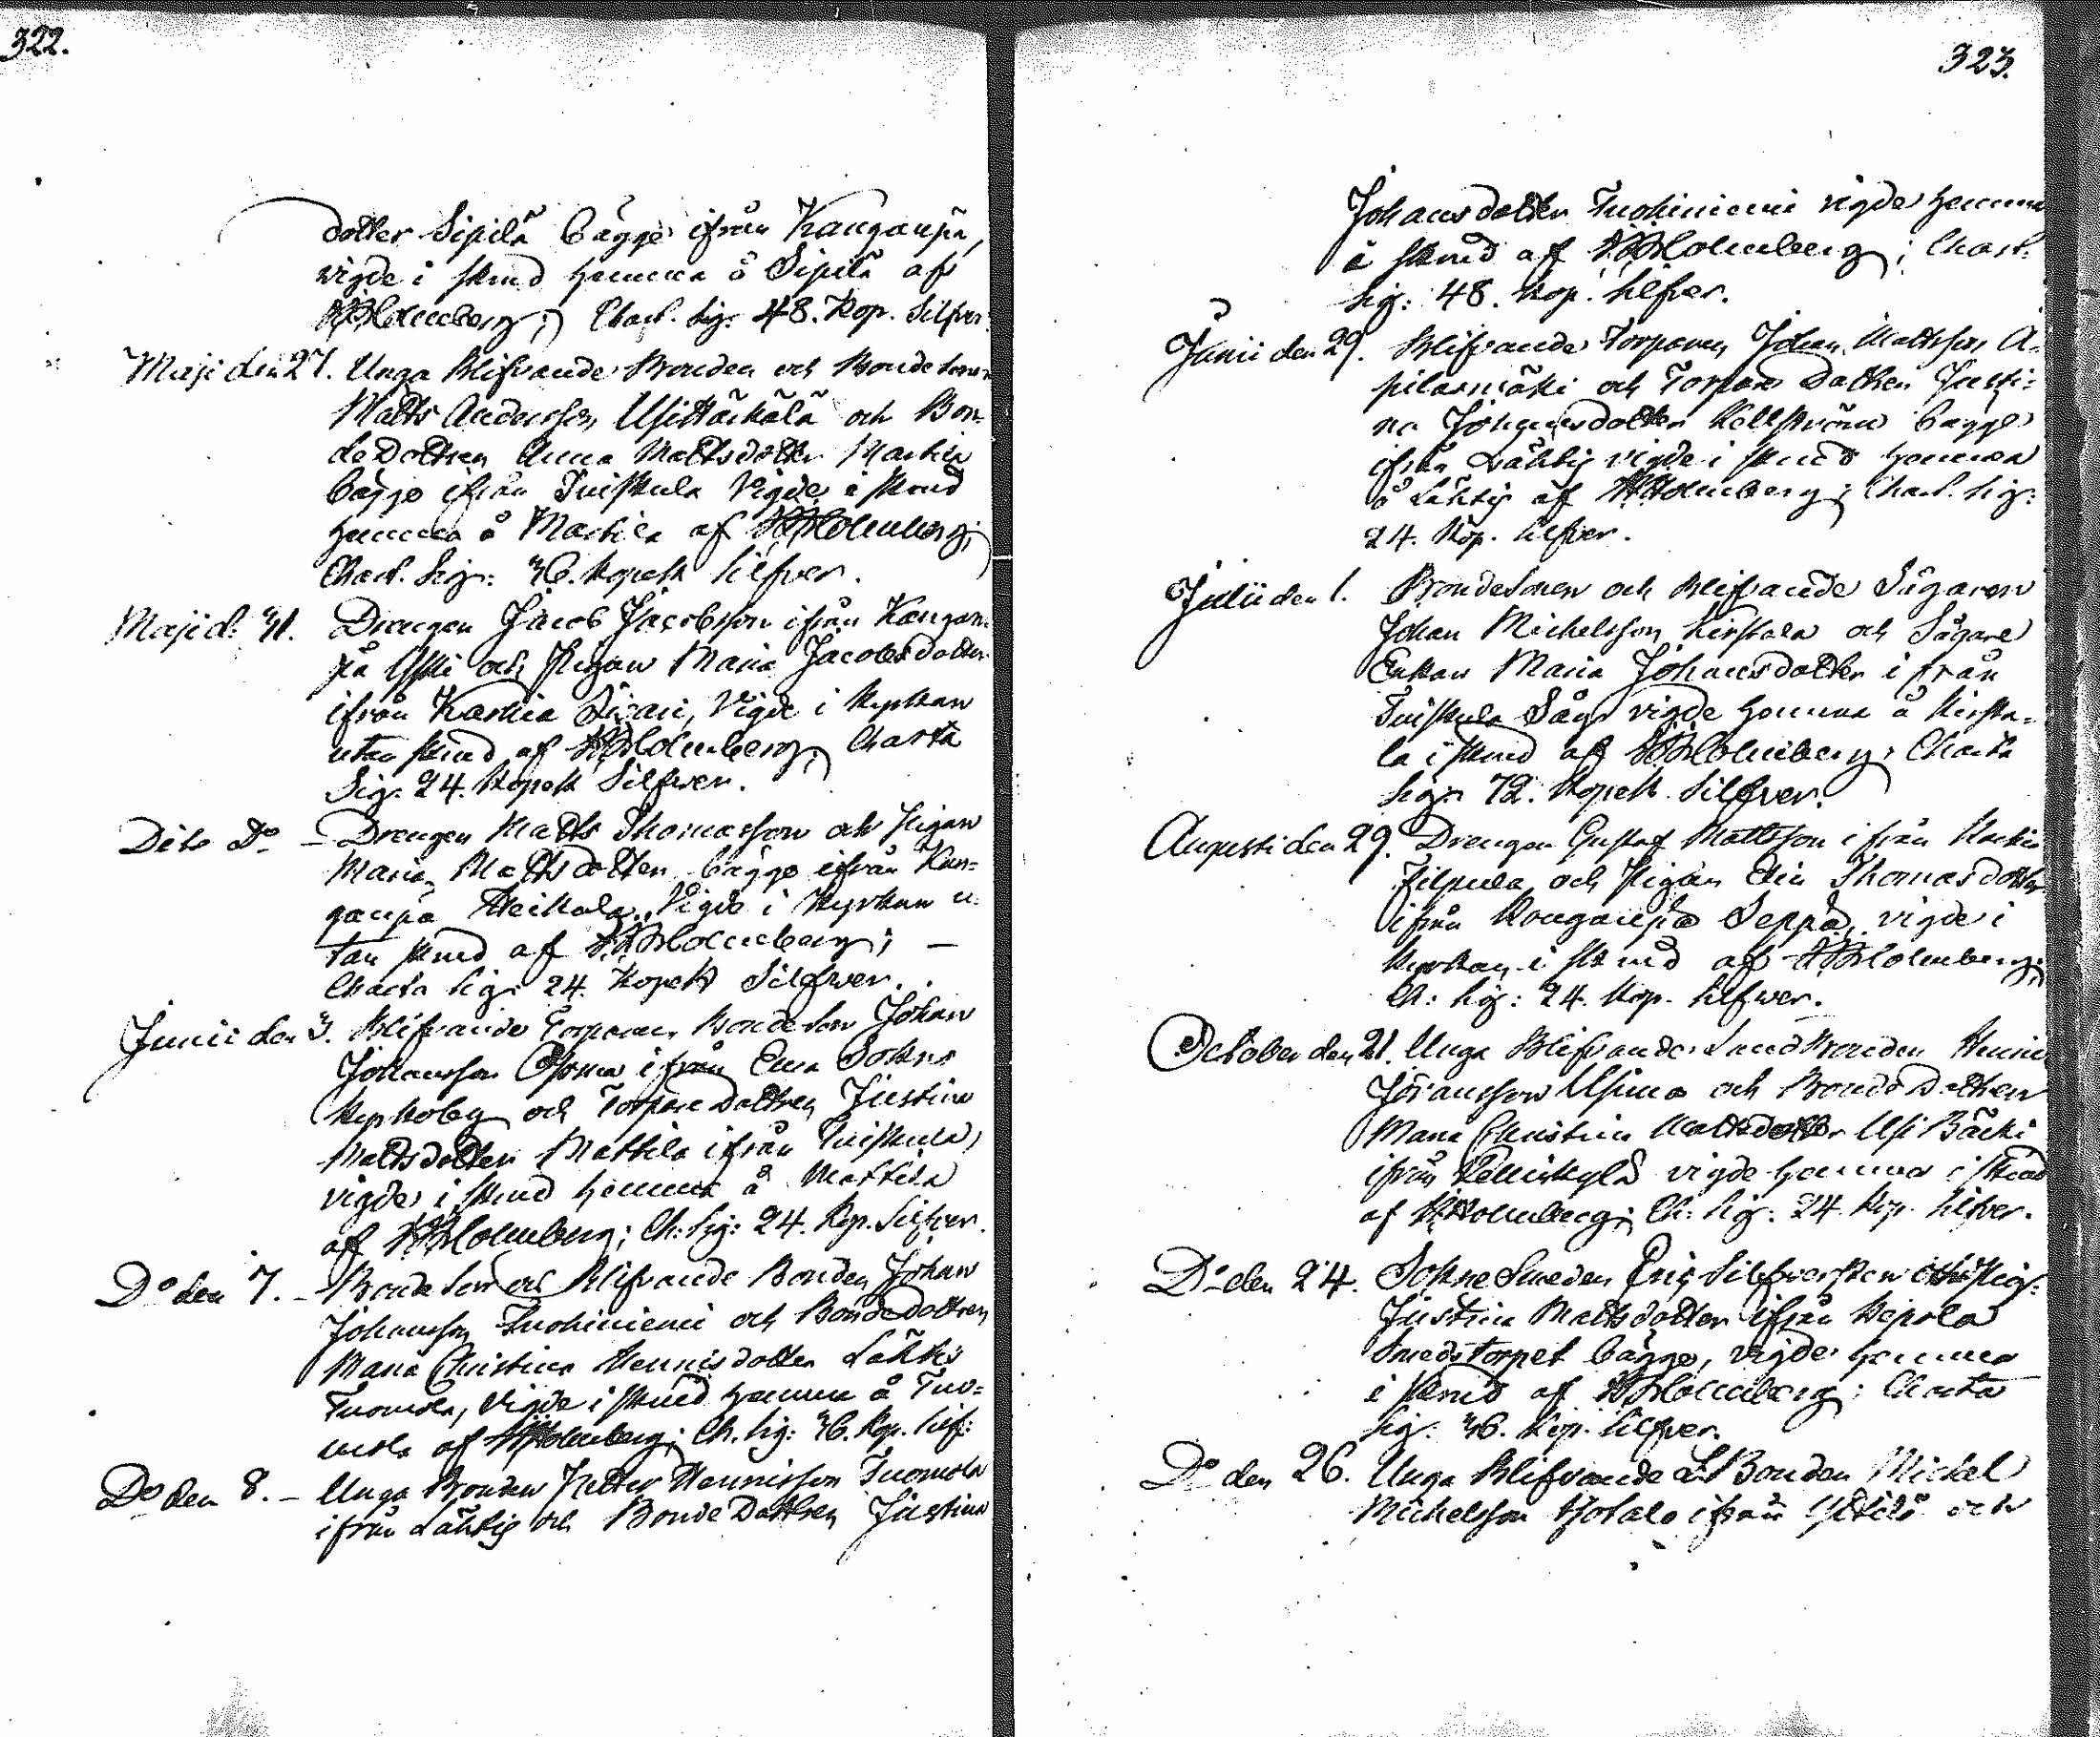 322.
dotter Sipilä bägge ifrån Kanganpä,
vigde i skrud hemma å Sipilä af
Holmberg; Chart. Sig: 48. Kop. Silfver
Maji den 27. Unga Blifvande Bonden och Bondesonen
Matts Andersson Usittäckälä och Bon-
de Dottren Anna Mattsdotter Martila
bägge ifrån Tuiskula Vigde i skrud
hemma å Martila af Holmberg;
Chart. Sig: 36. Kopek Silfver.
Maji d: 31. Drengen Jacob Jacobsson ifrån Kangan-
pä Yski och Pigan Maria Jacobsdotter
ifrån Karhia, Vigde i Kyrkan
utan skrud af Holmberg; Charta
Sig: 24. Kopek Silfver.
Dito Do – Drengen Matts Thomasson och Pigan
Maria Mattsdotter bägge ifrån Kan-
ganpä Heikola, Vigde i Kyrkan u-
tan skrud af Holmberg; –
Charta Sig: 24. Kopek Silfver.
Junii den 3. Blifvande Torparen Bondeson Johan
Johansson ifrån Eura Sokns
Kyrkoby och Torpare Dottren Justina
Mattsdotter Mattila ifrån Tuiskula,
vigde i skrud hemma å Mattila
af Holmberg; Ch: Sig: 24. Kop. Silfver.
Do den 7. – Bonde Son och Blifvande Bonden Johan
Johansson Tuohiniemi och Bondedottren
Maria Christina Hennisdotter Lähtis
Tuomola, Vigde i skrud hemma å Tuo-
mola af Holmberg; Ch. Sig: 36. Kop. Silf:
Do den 8. – Unga Bonden Petter Hennisson Tuomola
ifrån Lähtis och Bonde Dottren Justina
323.
Johansdotter Tuohiniemi vigde hemma
i skrud af Holmberg; Chart.
Sig: 48. Kop. Silfver.
Junii den 29. Blifvande Torparen Johan Mattsson A-
pilasmäki och Torpare Dottren Justi-
na Johansdotter Kellström bägge
ifrån Lähtis vigde i skrud hemma
å Lähtis af Holmberg; Chart. Sig:
24. Kop. Silfver.
Julii den 1. Bondesonen och Blifvande Sågaren
Johan Michelsson Kirstala och Sågare
Enkan Maria Johansdotter ifrån
Tuiskula Såg vigde hemma å Kirsta-
la i skrud af Holmberg; Charta
Sig: 72. Kopek Silfver.
Augusti den 29. Drengen Gustaf Mattsson ifrån
Filpula och Pigan Elin Thomasdotter
ifrån Kanganpä Seppä, vigde i
Kyrkan i skrud af Holmberg;
Ch: Sig: 24. Kop. Silfver.
October den 21. Unga Blifvande Landbonden Henric
Jöransson Usimo och Bonde Dottren
Maria Christina Mattsdotter Usi Bäcki
ifrån vigde hemma i skrud
af Holmberg; Ch: Sig: 24. Kop. Silfver.
Do den 24. Sokne Smeden Eric Silfversten och Pig:
Justina Mattsdotter ifrån Kepola
Smeds torpet bägge, vigde hemma
i skrud af Holmberg; Charta
Sig: 36. Kop. Silfver.
Do den 26. Unga Blifvande L. Bonden Michel
Michelsson ifrån Yttilä och